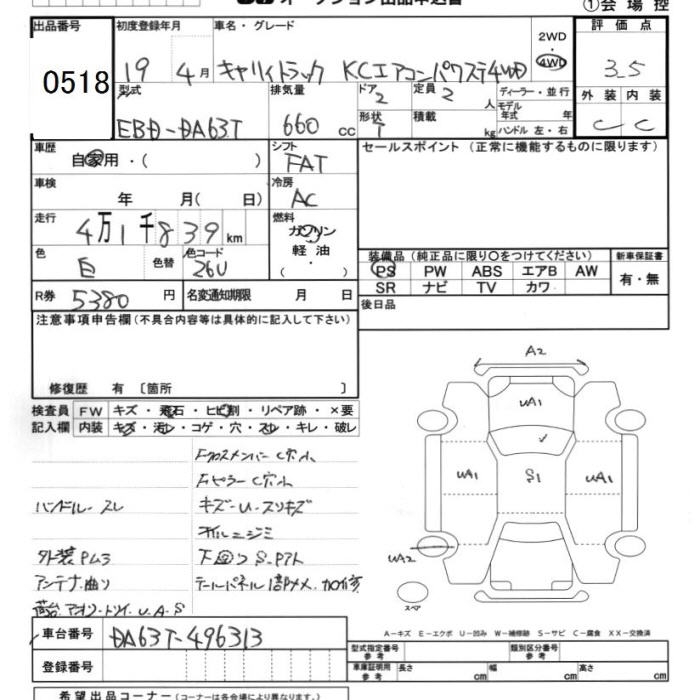 ①会場控
出品番号 初度登録年月 車名・グレード 2WD 評価点
0518 19 4月 キャリイトラック KCエアコンパワステ4WD 4WD 3.5
型式 排気量 ドア 2 定員 2 人 ディーラー・並行 外装 内装
EBD-DA63T 660 cc 形状 T 積載 kg モデル年式 年 ハンドル 左・右 C C
車歴 自家用・( ) シフト FAT セールスポイント (正常に機能するものに限ります)
車検 年 月( 日) 冷房 AC
走行 4万1千839km 燃料 ガソリン
軽油
( ・ )
色 白 色替 色コード 26U 装備品 (純正品に限り○をつけてください) 新車保証書
PS PW ABS エアB AW 有・無
R券 5380円 名変通知期限 月 日 SR ナビ TV カワ
後日品
注意事項申告欄(不具合内容等は具体的に記入して下さい)
修復歴 有 〔箇所 〕
検査員 FW キズ・飛石・ヒビ割・リペア跡・×要
記入欄 内装 キズ・汚レ・コゲ・穴・スレ・キレ・破レ
Fクロスメンバー C穴小
Fピラー C穴小
ハンドル-スレ キズ-U-スリキズ
外装PM3 下回りS.Pアト
アンテナ曲り テールパネル
荷台アオリ-トリイ U.A.S
A2
UA1
UA1 S1 UA1
UA2
スペア
A-キズ E-エクボ U-凹み W-補修跡 S-サビ C-腐食 XX-交換済
車台番号 DA63T-496313
型式指定番号 参考 類別区分番号 参考
登録番号 車庫証明用 参考 長さ cm 幅 cm 高さ cm
希望出品コーナー (コーナーは各会場により異なります。)